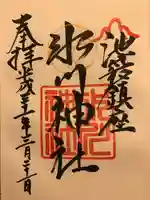 池袋鎮座
氷川神社
奉拝 平成三十一年三月